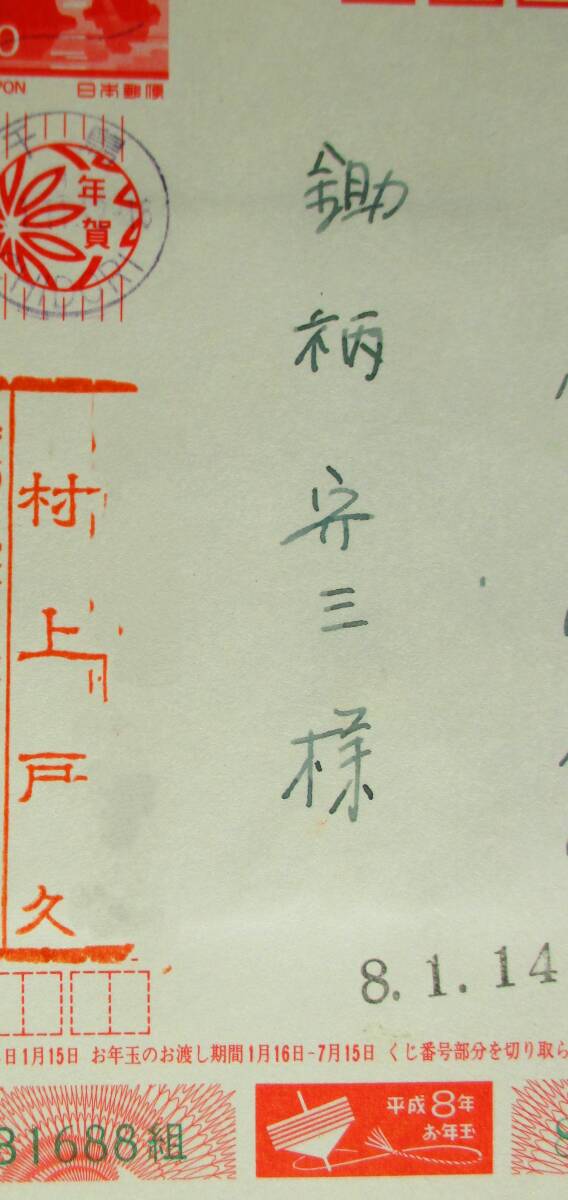 0
PPON 日本郵便
年賀
MIDORI
鋤柄安三様
村上戸久
8.1.14
日1月15日 お年玉のお渡し期間1月16日-7月15日 くじ番号部分を切り取ら
平成8年
お年玉
31688組